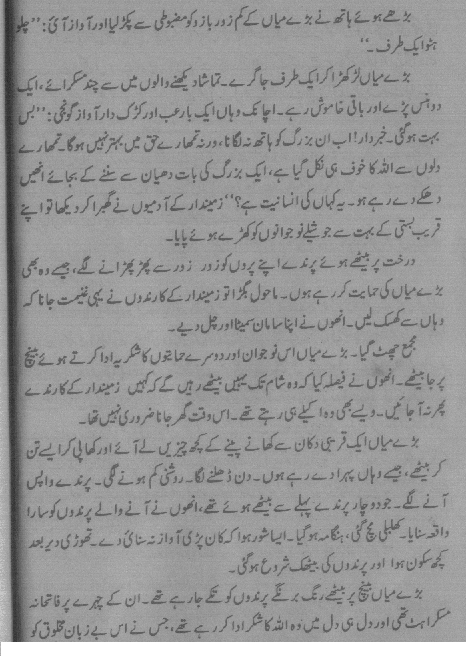 بڑھے ہوئے ہاتھ نے بڑے میاں کے کم زور بازو کو مضبوطی سے پکڑ لیا اور آواز آئی: ’’چلو
ہٹو ایک طرف۔‘‘
بڑے میاں لڑکھڑا کر ایک طرف جا گرے۔ تماشا دیکھنے والوں میں سے چند مسکرائے، ایک
دو ہنس پڑے اور باقی خاموش رہے۔ اچانک وہاں ایک بارعب اور کڑک دار آواز گونجی: ’’بس
بہت ہو گئی۔ خبردار! اب ان بزرگ کو ہاتھ نہ لگانا، ورنہ تمھارے حق میں بہتر نہیں ہو گا۔ تمھارے
دلوں سے اللہ کا خوف ہی نکل گیا ہے، ایک بزرگ کی بات دھیان سے سننے کے بجائے انھیں
دھکے دے رہے ہو۔ یہ کہاں کی انسانیت ہے؟‘‘ زمیندار کے آدمیوں نے گھبرا کر دیکھا تو اپنے
قریب بستی کے بہت سے جوشیلے نوجوانوں کو کھڑے ہوئے پایا۔
درخت پر بیٹھے ہوئے پرندے اپنے پروں کو زور زور سے پھڑ پھڑانے لگے، جیسے وہ بھی
بڑے میاں کی حمایت کر رہے ہوں۔ ماحول بگڑا تو زمیندار کے کارندوں نے یہی غنیمت جانا کہ
وہاں سے کھسک لیں۔ انھوں نے اپنا سامان سمیٹا اور چل دیے۔
مجمع چھٹ گیا۔ بڑے میاں اس نوجوان اور دوسرے حمایتوں کا شکریہ ادا کرتے ہوئے بینچ
پر جا بیٹھے۔ انھوں نے فیصلہ کیا کہ وہ شام تک یہیں بیٹھے رہیں گے کہ کہیں زمیندار کے کارندے
پھر نہ آ جائیں۔ ویسے بھی وہ اکیلے ہی رہتے تھے۔ اس وقت گھر جانا ضروری نہیں تھا۔
بڑے میاں ایک قریبی دکان سے کھانے پینے کے کچھ چیزیں لے آئے اور کھا پی کر ایسے تن
کر بیٹھے، جیسے وہاں پہرا دے رہے ہوں۔ دن ڈھلنے لگا۔ روشنی کم ہونے لگی۔ پرندے واپس
آنے لگے۔ جو دو چار پرندے پہلے سے بیٹھے ہوئے تھے، انھوں نے آنے والے پرندوں کو سارا
واقعہ سنایا۔ کھلبلی مچ گئی، ہنگامہ ہو گیا۔ ایسا شور ہوا کہ کان پڑی آواز نہ سنائی دے۔ تھوڑی دیر بعد
کچھ سکون ہوا اور پرندوں کی بیٹھک شروع ہو گئی۔
بڑے میاں بینچ پر بیٹھے رنگ برنگے پرندوں کو تکے جا رہے تھے۔ ان کے چہرے پر فاتحانہ
مسکراہٹ تھی اور دل ہی دل میں وہ اللہ کا شکر ادا کر رہے تھے، جس نے اس بے زبان مخلوق کو